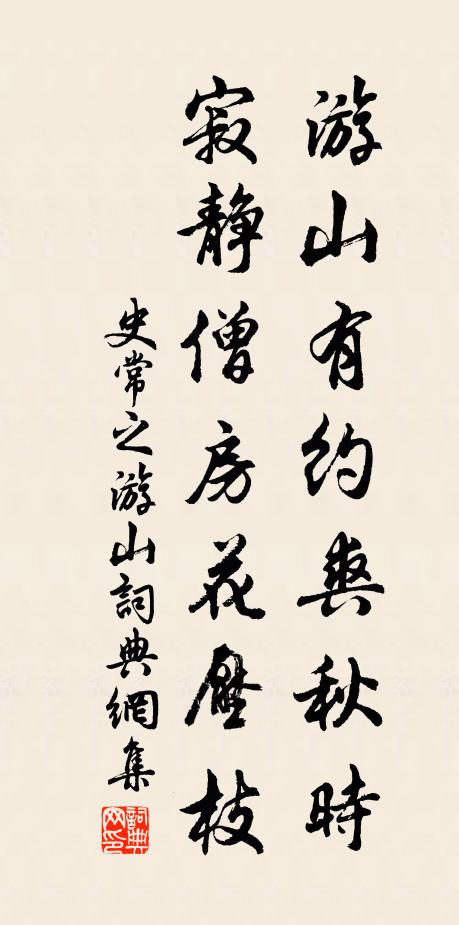 游山有約爽秋時
寂靜僧房花壓枝
史常之游山詞典網集
詞典網印